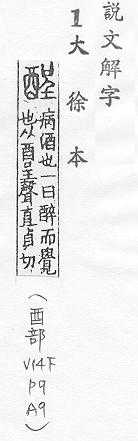 説文解字
1大徐本
醒
病酒也一曰醉而覺
也从酉呈聲直貞切
(酉部
V14下
P9
A9)